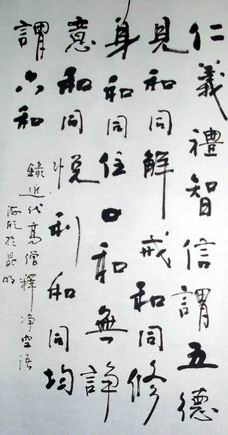 仁義禮智信謂五德
見和同解戒和同修
身和同住口和無諍
意和同悅利和同均
謂六和
錄近代高僧釋净空語
於昆明